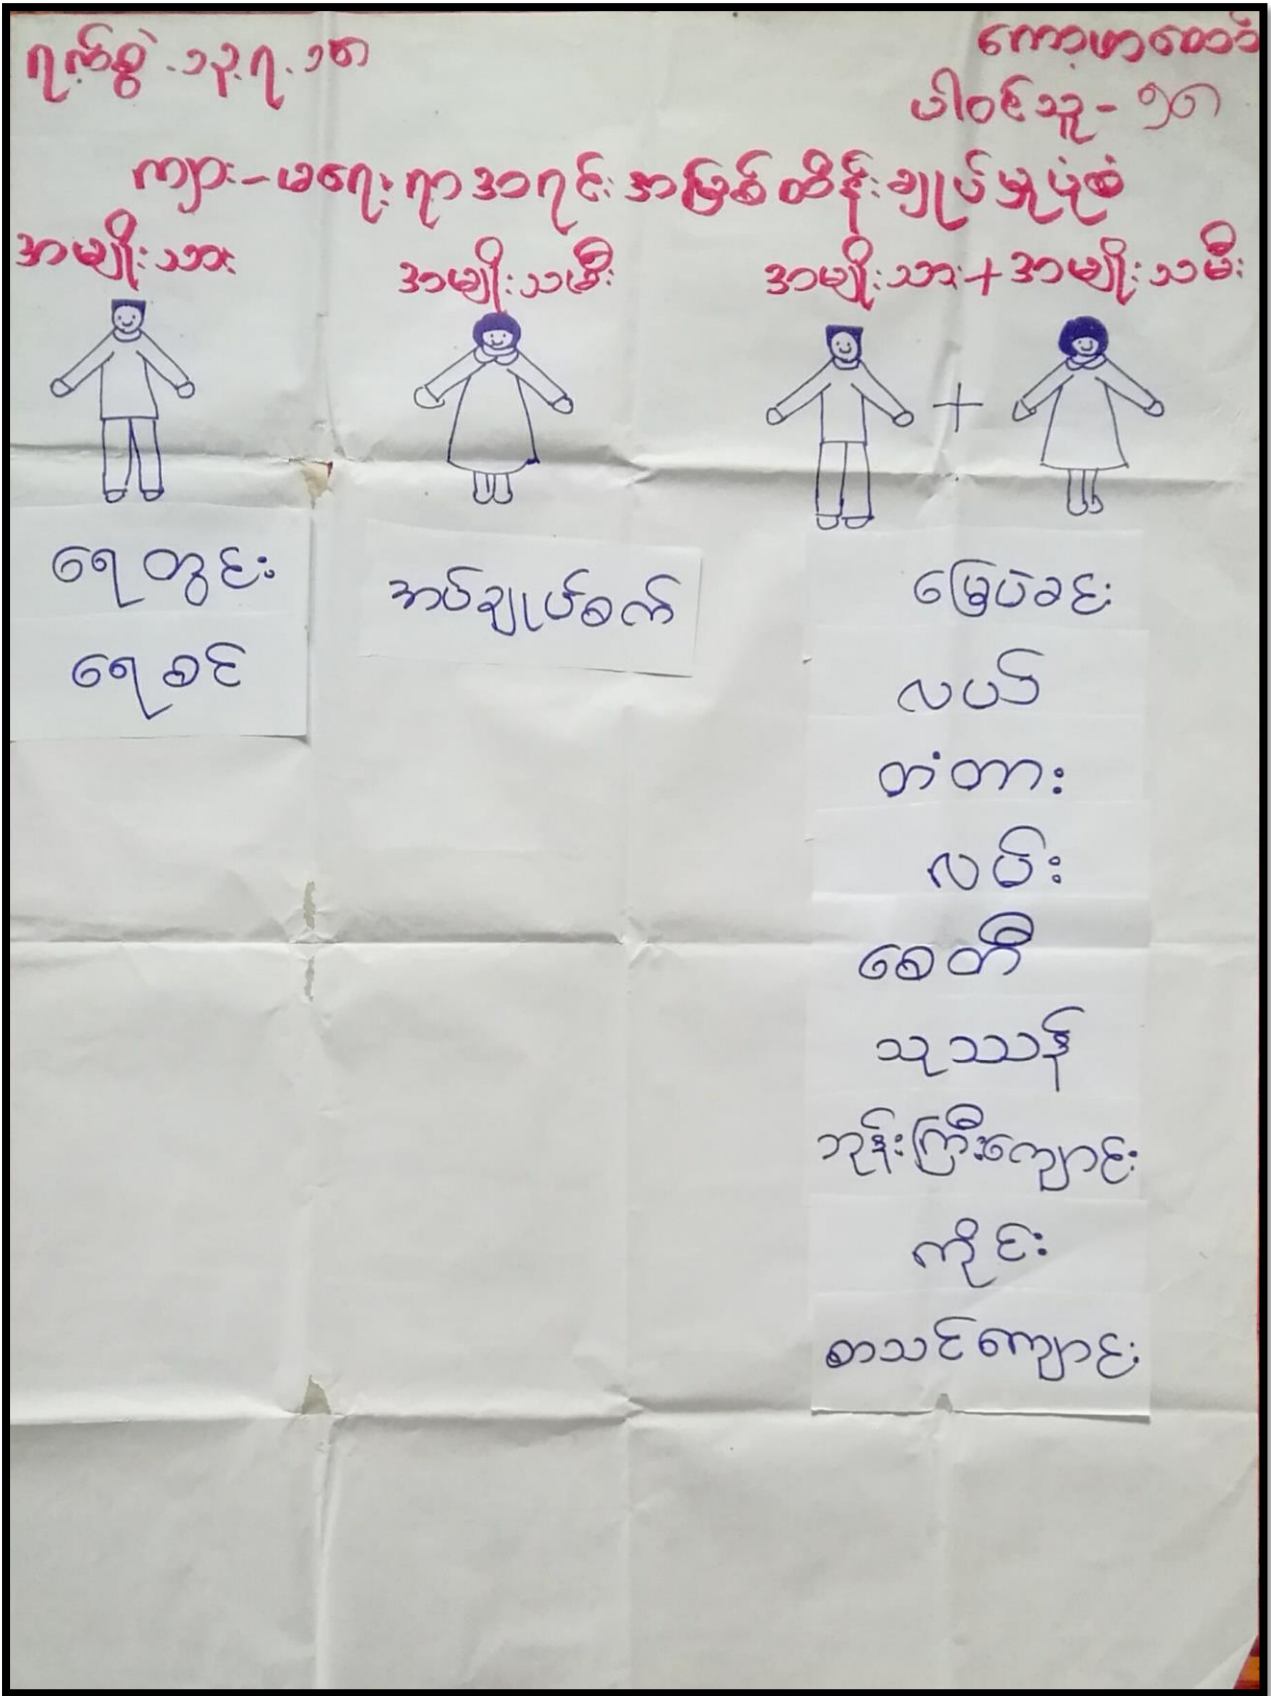 ရက်စွဲ - ၁၃.၇.၁၈
ပါဝင်သူ - ၅၈
ကျား-မရေးရာ အရင်းအမြစ်ထိန်းချုပ်မှုပုံစံ
အမျိုးသား
အမျိုးသမီး
အမျိုးသား + အမျိုးသမီး
+
ရေတွင်း
ရေစင်
အပ်ချုပ်စက်
မြေပဲခင်း
လယ်
တံတား
လမ်း
စေတီ
သုဿန်
ဘုန်းကြီးကျောင်း
ကိုင်း
စာသင်ကျောင်း